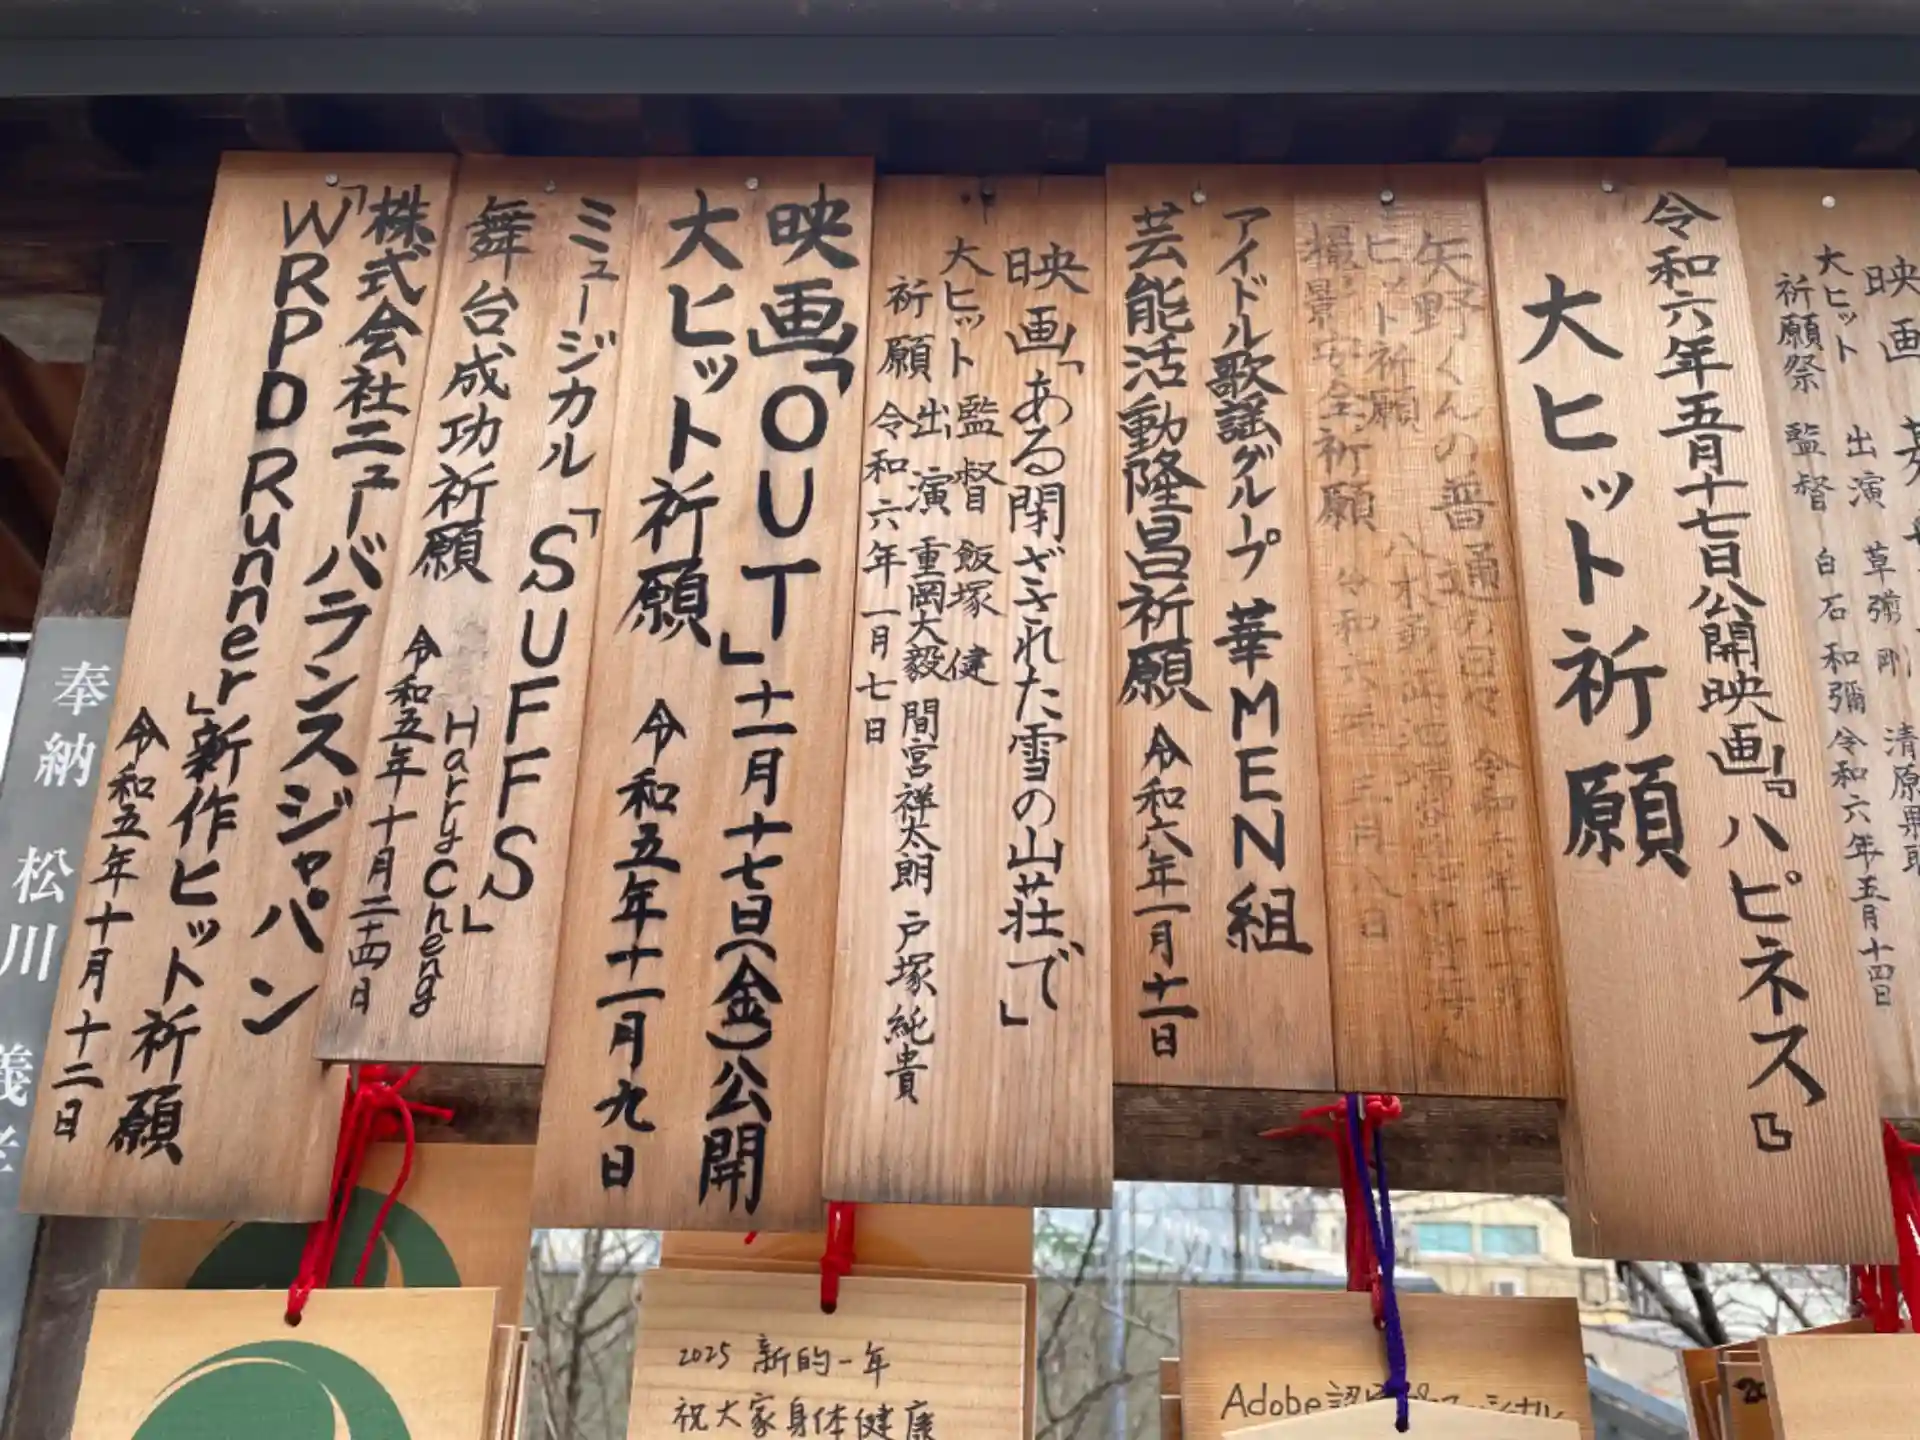 令和六年五月十七日公開映画『ハピネス』
大ヒット祈願
矢野くんの普通の日々
ヒット祈願
撮影安全祈願
アイドル歌謡グループ 華MEN組
芸能活動隆昌祈願 令和六年一月十一日
映画「ある閉ざされた雪の山荘で」
大ヒット 監督 飯塚 健
出演 重岡大毅 間宮祥太朗 戸塚純貴
祈願 令和六年一月七日
映画「OUT」十一月十七日(金)公開
大ヒット祈願 令和五年十一月九日
ミュージカル「SUFFS」
舞台成功祈願 Harry Cheng
令和五年十月二十四日
株式会社ニューバランスジャパン
「WRPD Runner」新作ヒット祈願
令和五年十月十二日
映画
大ヒット 出演 草彅 剛 清原果耶
祈願祭 監督 白石 和彌 令和六年五月十四日
奉納 松川
2025 新的一年
祝大家身体健康
Adobe認定